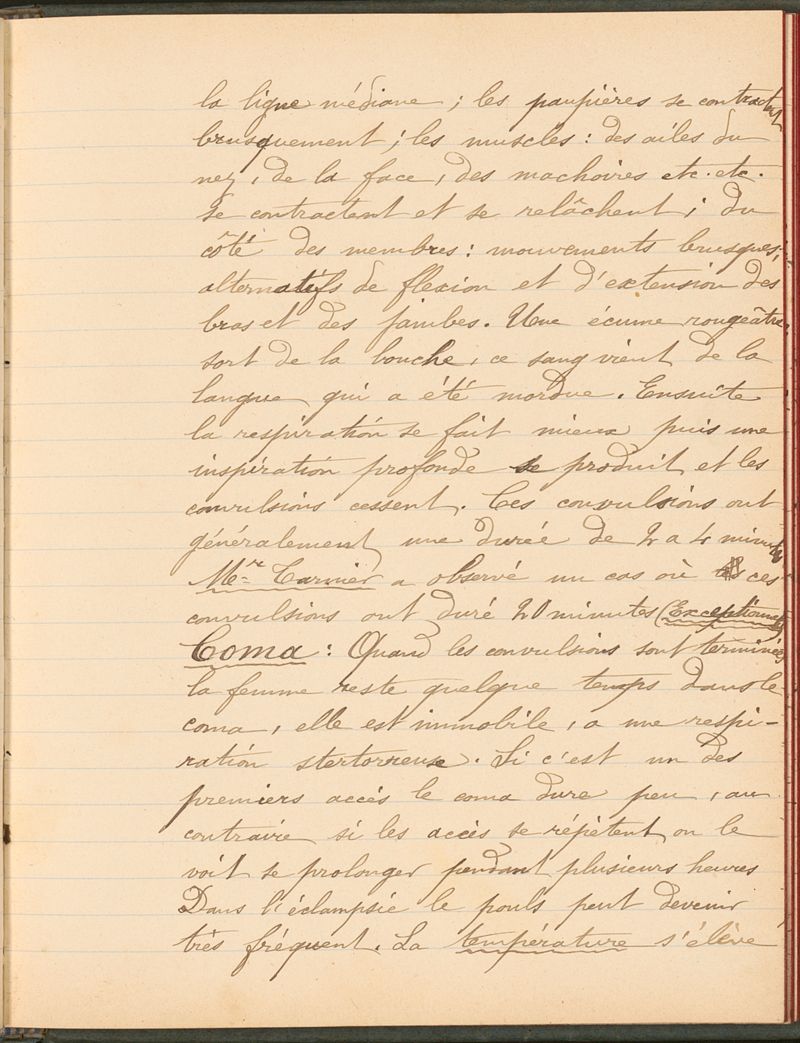 la ligne médiane ; les paupières se contractent
brusquement ; les muscles : des ailes du
nez, de la face, des machoires etc. etc.
se contractent et se relâchent ; du
côté des membres : mouvements brusques,
alternatifs de flexion et d'extension des
bras et des jambes. Une écume rougeâtre
sort de la bouche, ce sang vient de la
langue qui a été mordue. Ensuite
la respiration se fait mieux puis une
inspiration profonde se produit et les
convulsions cessent. Ces convulsions ont
généralement une durée de 2 a 4 minutes
Mr. Tarnier a observé un cas où ces
convulsions ont duré 20 minutes (Exceptionnel)
Coma : Quand les convulsions sont terminées
la femme reste quelque temps dans le
coma, elle est immobile, a une respi-
ration stertorreuse. Si c'est un des
premiers accés le coma dure peu, au
contraire si les accès se répètent on le
voit se prolonger pendant plusieurs heures
Dans l'éclampsie le pouls peut devenir
très fréquent. La température s'élève